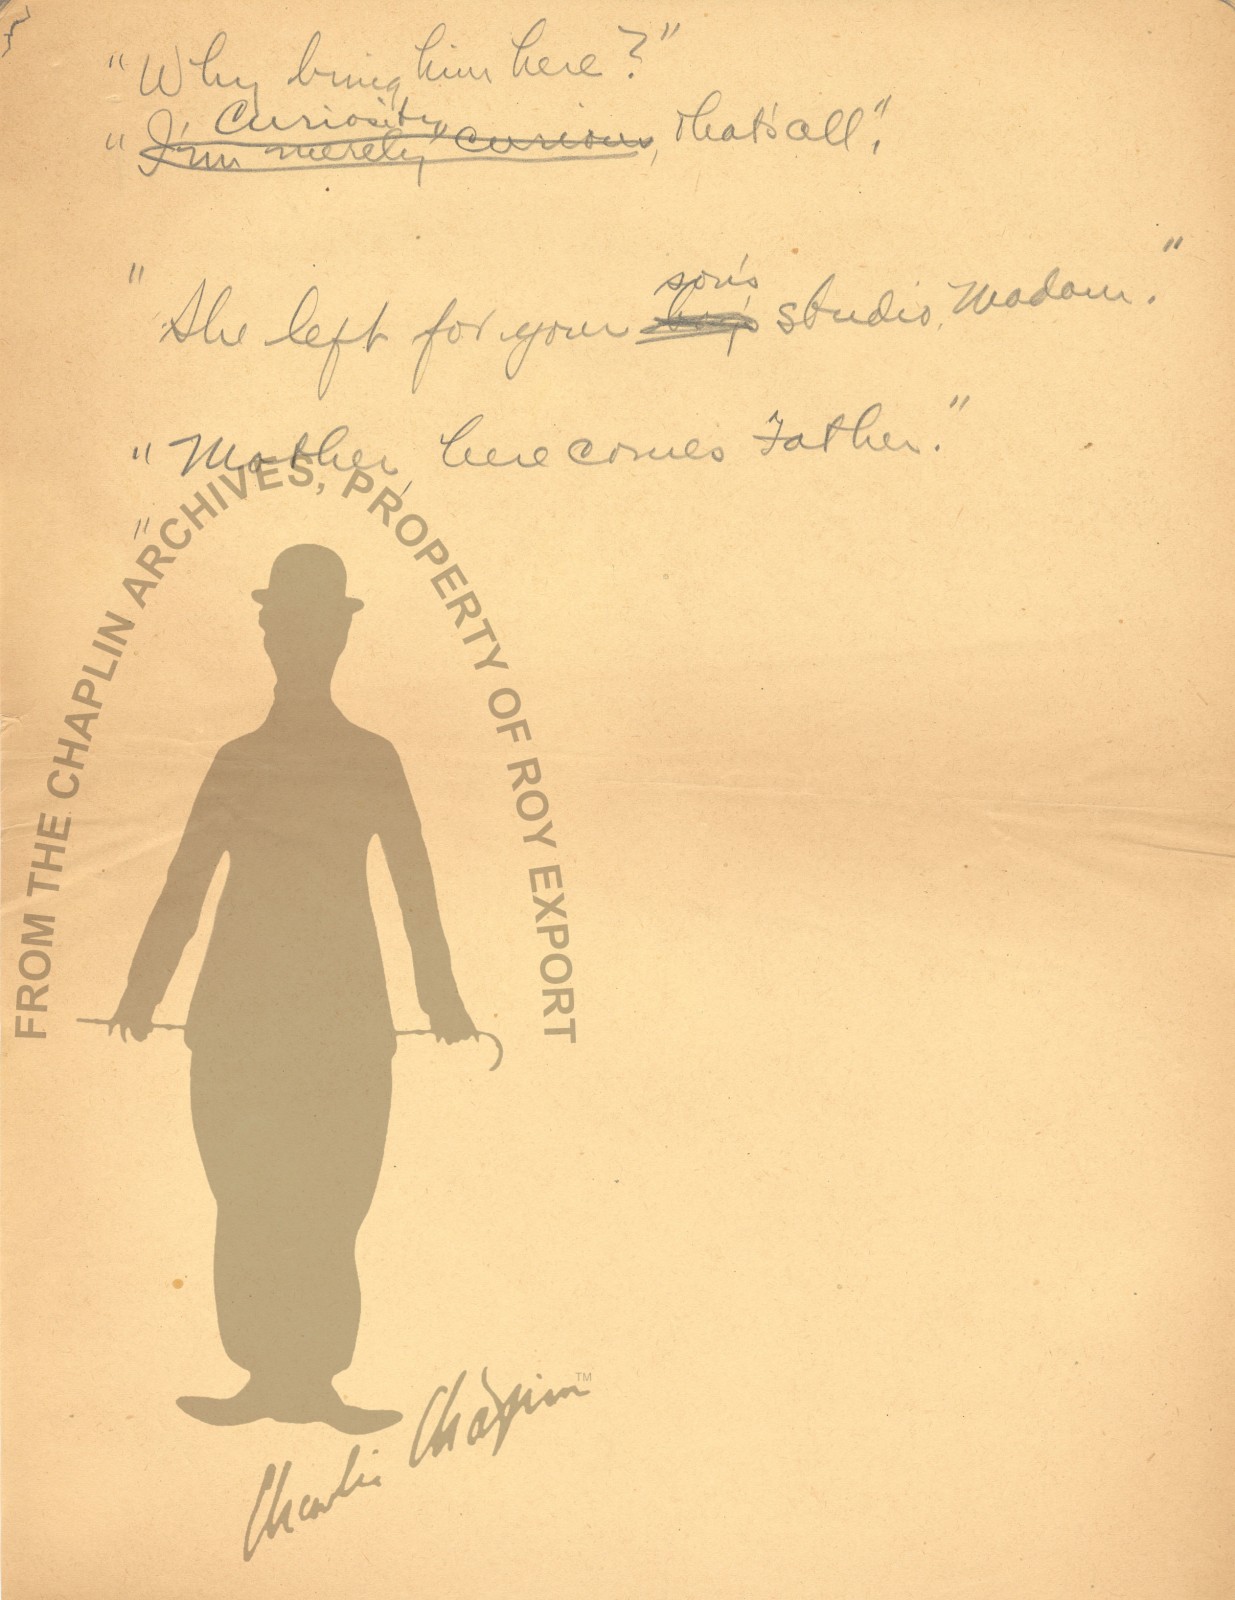 "Why bring him here?"
Curiosity
"I'm merely curious, that's all".
son's
"She left for your boy's studio, Madam."
"Mother, here comes Father."
"
FROM THE CHAPLIN ARCHIVES, PROPERTY OF ROY EXPORT
Charlie Chaplin TM